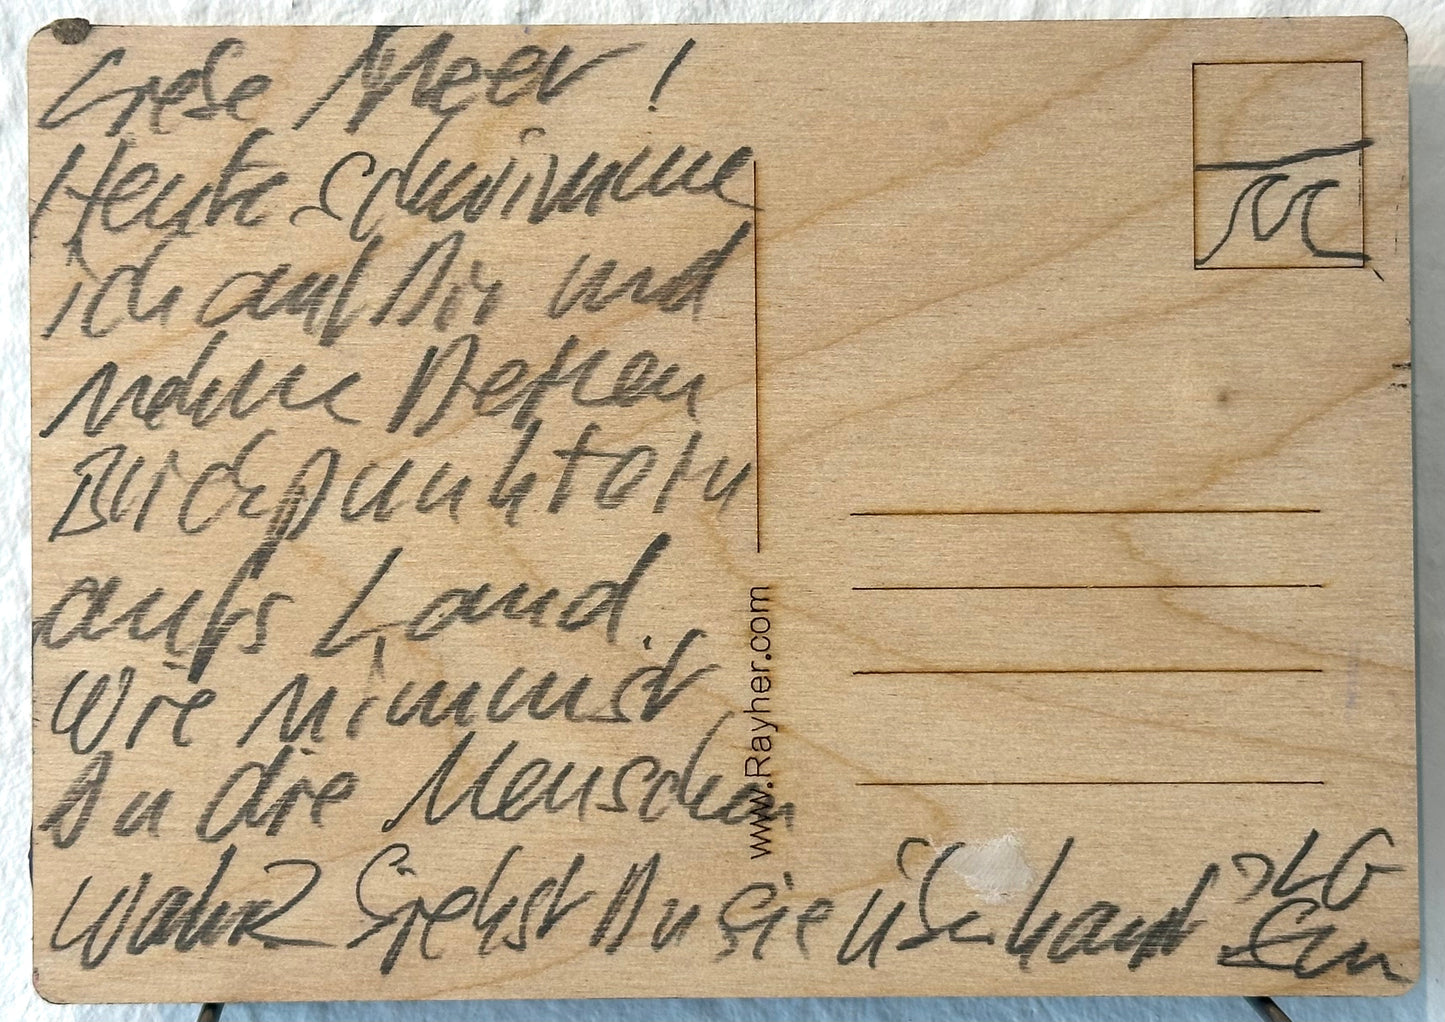 Liebe Meer !
Heute schwimme
ich auf Dir und
nehme Deinen
Blickpunkt ein
aufs Land.
Wie nimmst
Du die Menschen
wahr? Siehst Du sie überhaupt? LG
www.Rayher.com